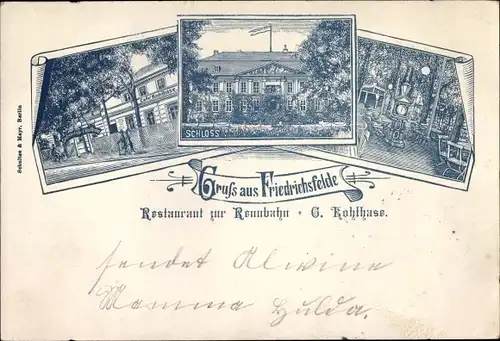 SCHLOSS
Schultze & Mayr, Berlin
Gruſs aus Friedrichsfelde
Restaurant zur Rennbahn + G. Kohlhase.
sendet Alwine
Mamma Hulda.